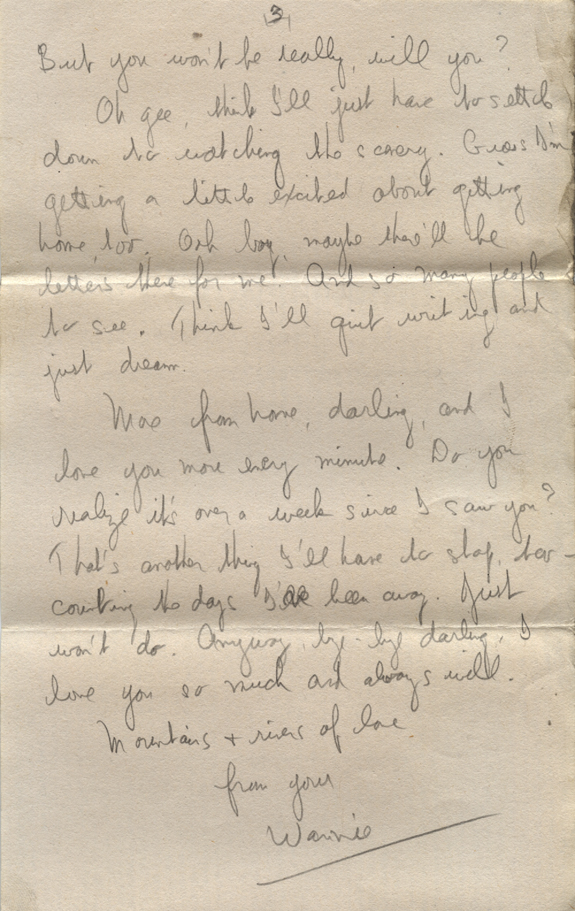 3
But you won't be really, will you?
Oh gee, think I'll just have to settle
down to watching the scenery. Guess I'm
getting a little excited about getting
home, too. Ooh boy, maybe there'll be
letters there for me! And so many people
to see. Think I'll quit writing and
just dream.
More from home, darling, and I
love you more every minute. Do you
realize it's over a week since I saw you?
That's another thing I'll have to stop, too -
counting the days I've been away. Just
won't do. Anyway, bye-bye darling, I
love you so much and always will.
Mountains + rivers of love
from your
Warnie